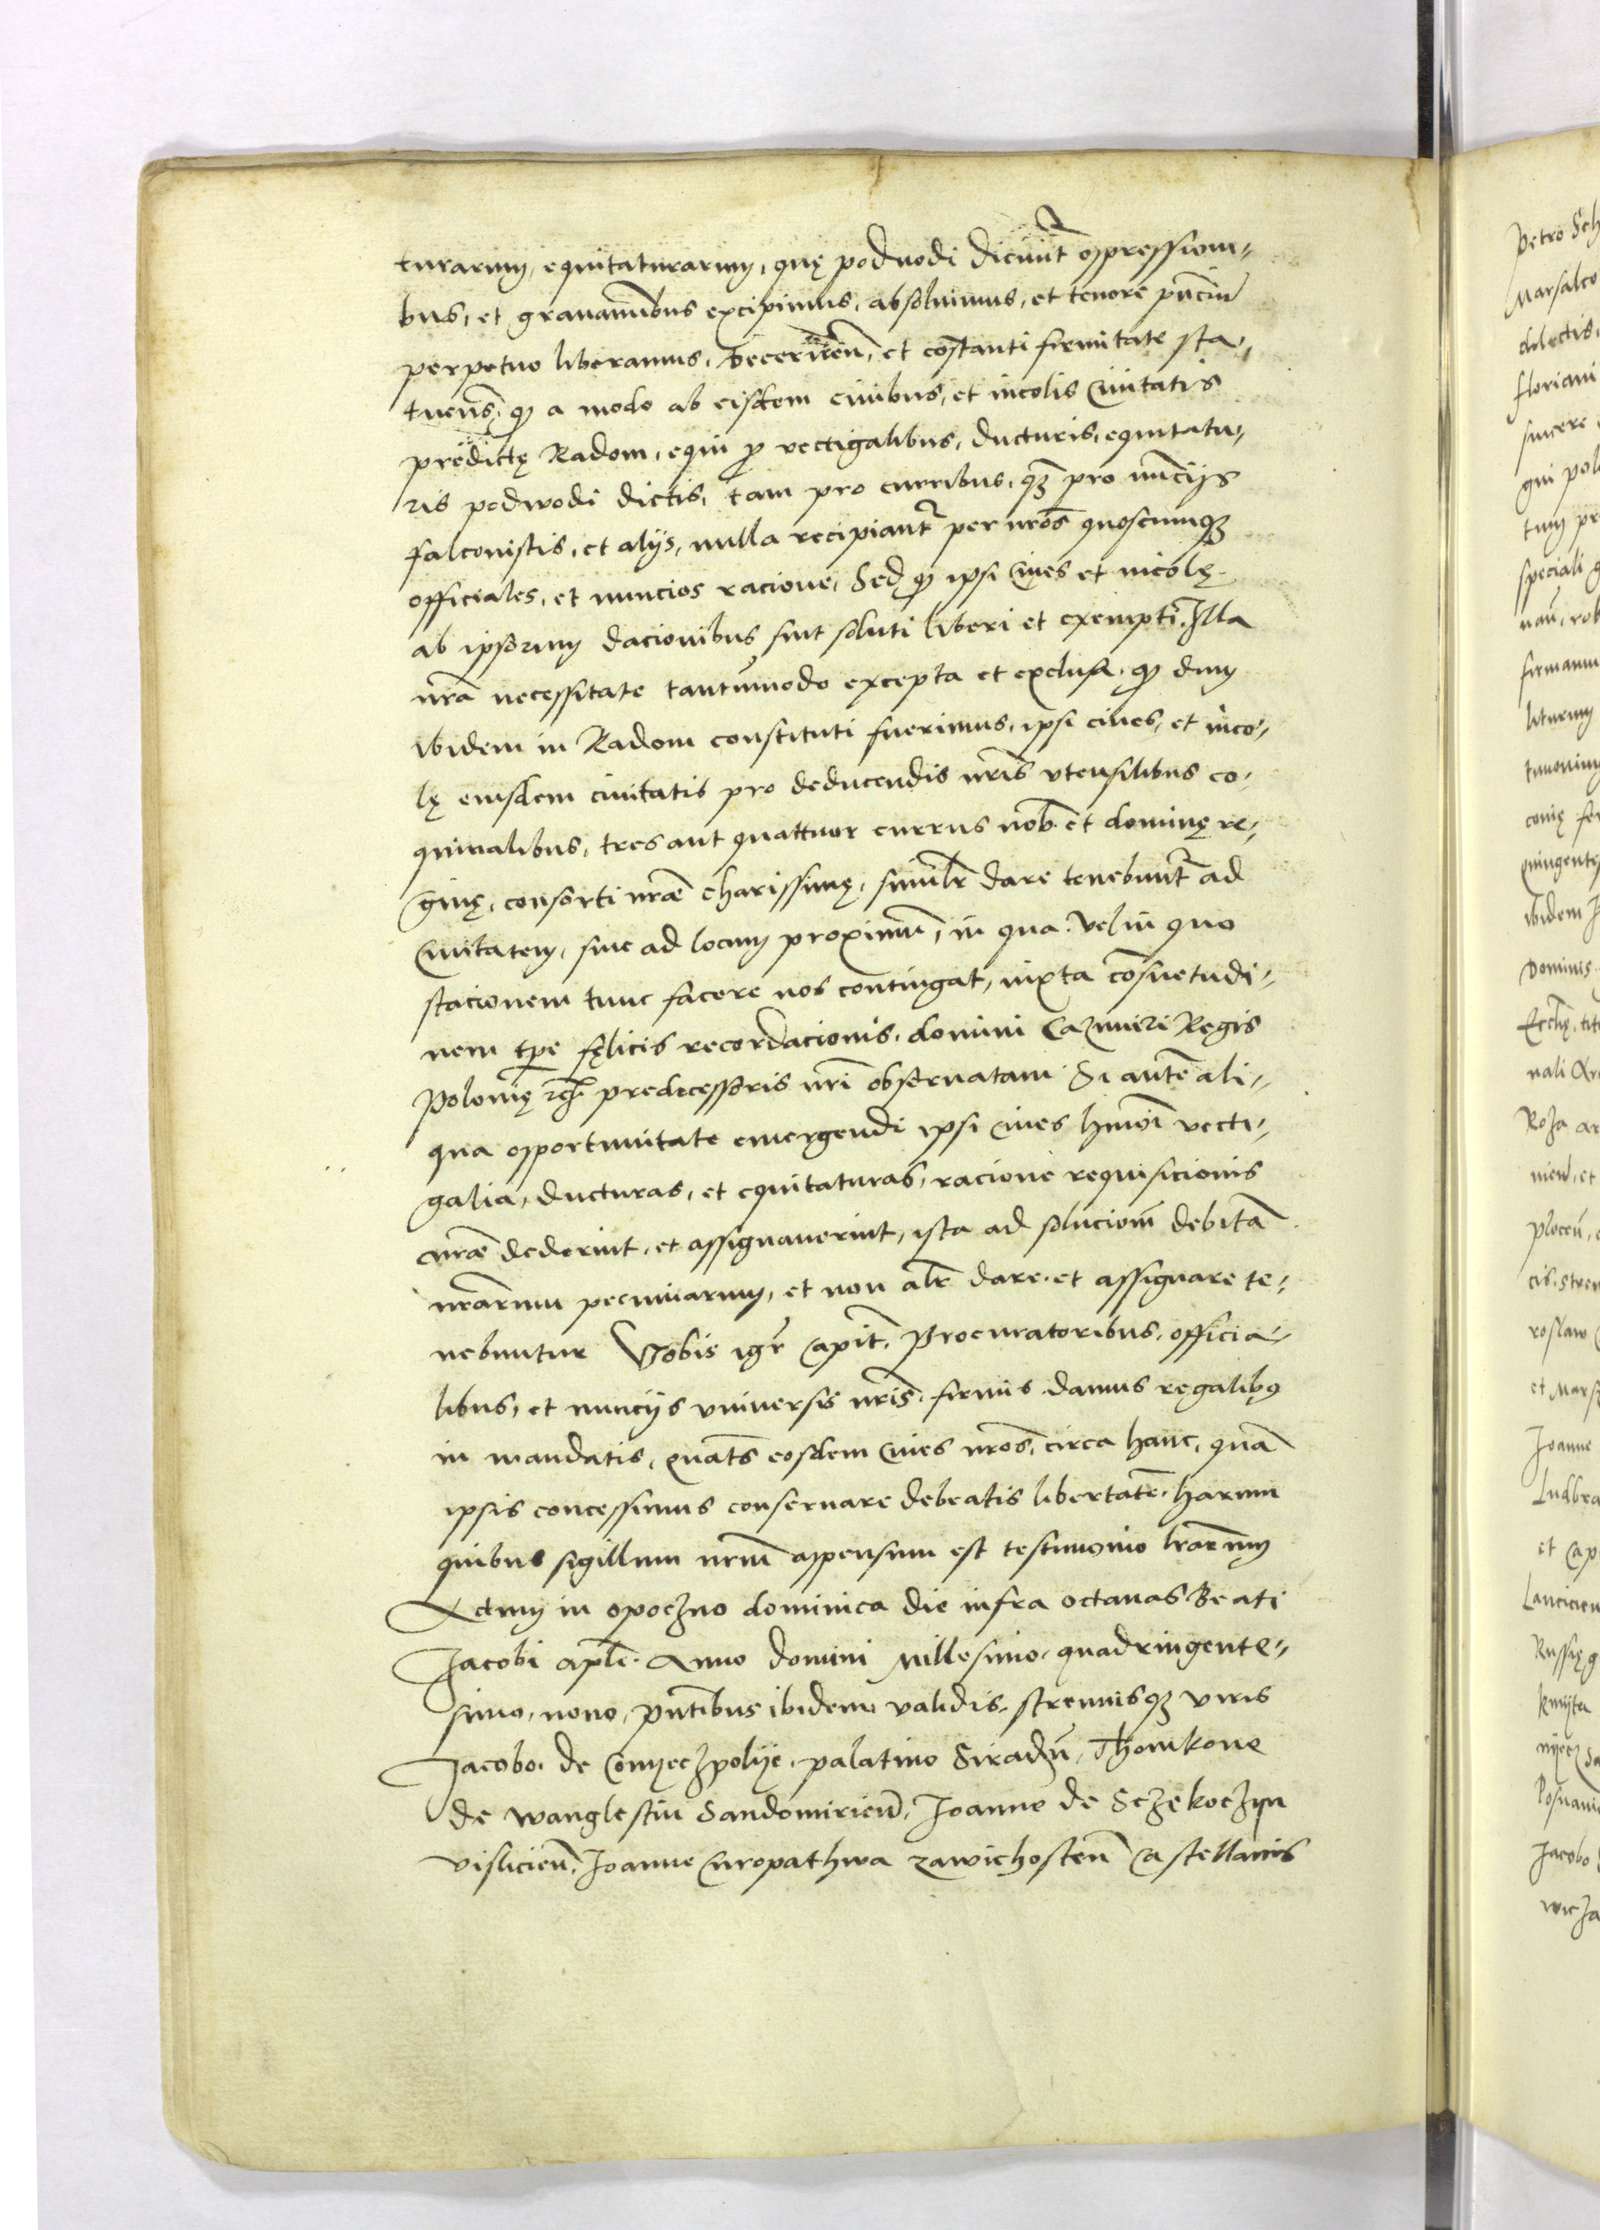 turarum, equitaturarum, quę podvodi dicunt᷑ oppression-
bus, et grauam̄ibus excipimus, absoluimus, et tenore pn̄cium
perpetuo liberamus, decernen̄, et cōstanti firmitate sta-
tuens̄, qp a modo ab eisdem ciuibus, et incolis Ciuitatis
predictę Radom, equi p vectigalibus, ducturis, equitatu-
ris podwodi dictis, tam pro curribus, qz pro nūcijs
falconistis, et alijs, nulla recipiant᷑ per nr̄os quoscumqz
officiales, et nuncios racione, Sed qp ipsi Ciues et incolę
ab ipsorum dacionibus sint soluti liberi et exempti. Illa
nr̄a necessitate tantūmodo excepta et exclusa. qp dum
ibidem in Radom constituti fuerimus, ipsi ciues, et inco-
lę eiusdem ciuitatis pro deducendis nr̄is vtensilibus co-
quinalibus, tres aut quattuor currus nob. et dominę re-
ginę, consorti nr̄æ charissimę, similr̄ dare tenebunt᷑ ad
Ciuitatem, siue ad locum proximū, in qua. vel in quo
stacionem tunc facere nos contingat, iuxta cōsuetudi-
nem tp̄e fęlicis recordacionis, domini Cazimiri Regis
Polonię ꝛc̄ predecessoris nr̄i obseruatam Si autē ali-
qua opportunitate emergendi ipsi Ciues hmōi vecti-
galia, ducturas, et equitaturas, racione requisicionis
nr̄æ dederint, et assignauerint, ista ad solucionē debitā
nr̄arum pecuniarum, et non alr̄ dare. et assignare te-
nebuntur Vobis igr̄ Capit̄. Procuratoribus. officia-
libus, et nuncijs vniuersis nr̄is. firmis damus regalibꝫ
in mandatis, quat̄s eosdem Ciues nr̄os, circa hanc, quā
ipsis concessimus conseruare debeatis libertatē. harum
quibus sigillum nr̄um appensum est testimonio lr̄arum
Actum in opoczno dominica die infra octauas Beati
Jacobi apl̄i. Anno domini Millesimo, quadringente-
simo, nono, pn̄tibus ibidem validis, strenuisqz viris
Jacobo. de Conyeczpolye. palatino Siradzn̄, Thomkone
de wanglestin Sandomirien̄, Joanne de Sczekoczyn
vislicien̄, Joanne Curopathwa zawichosten̄ Castellanis
Petro
Marsalco
dilectis,
floriani
sincere
speciali
ibidem
Joanne
et Cap
Jacobo